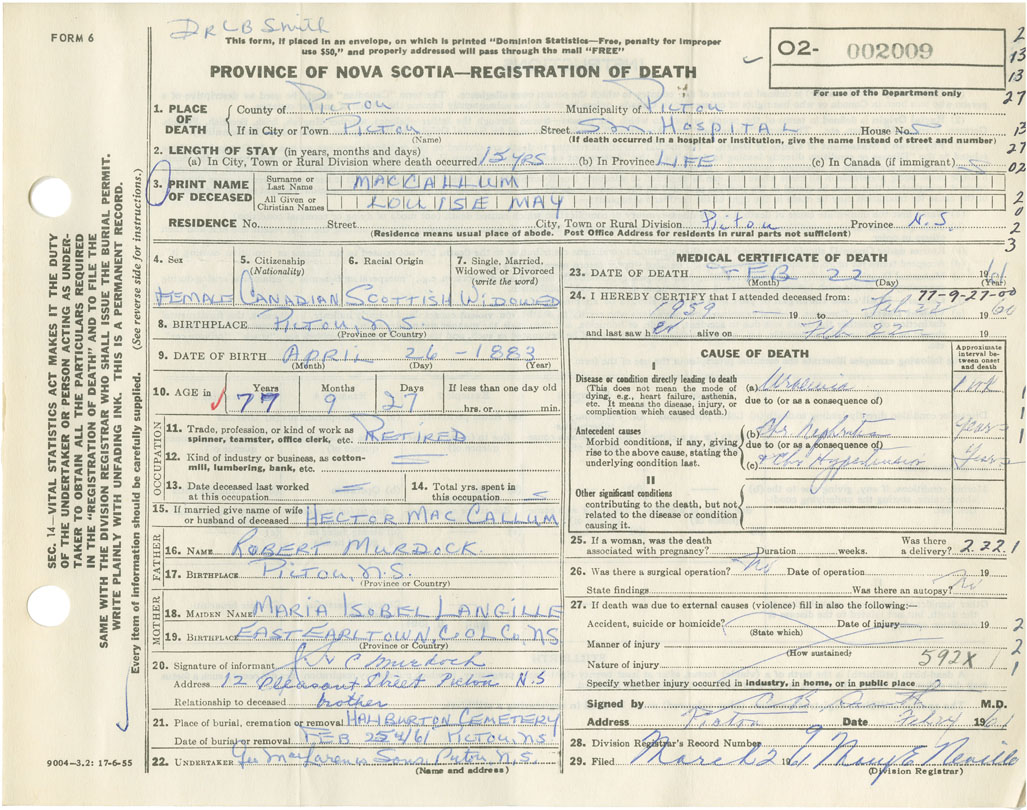 FORM 6
Dr L B Smith
This form, if placed in an envelope, on which is printed "Dominion Statistics—Free, penalty for improper
use $50," and properly addressed will pass through the mail "FREE"
PROVINCE OF NOVA SCOTIA—REGISTRATION OF DEATH
02- 002009
For use of the Department only
2
13
13
27
13
27
02
2
0
2
3
1. PLACE OF DEATH { County of PICTOU Municipality of PICTOU
If in City or Town PICTOU (Name) Street SM HOSPITAL House No.
(If death occurred in a hospital or institution, give the name instead of street and number)
2. LENGTH OF STAY (in years, months and days)
(a) In City, Town or Rural Division where death occurred 15 YRS (b) In Province LIFE (c) In Canada (if immigrant)
3. PRINT NAME OF DECEASED { Surname or Last Name MACCALLUM
All Given or Christian Names LOUISE MAY
RESIDENCE No. Street City, Town or Rural Division PICTOU Province N.S.
(Residence means usual place of abode. Post Office Address for residents in rural parts not sufficient)
4. Sex FEMALE
5. Citizenship (Nationality) CANADIAN
6. Racial Origin SCOTTISH
7. Single, Married, Widowed or Divorced (write the word) WIDOWED
8. BIRTHPLACE PICTOU, N.S.
(Province or Country)
9. DATE OF BIRTH APRIL 26 - 1883
(Month) (Day) (Year)
10. AGE in Years 77 Months 9 Days 27 If less than one day old hrs. or min.
OCCUPATION
11. Trade, profession, or kind of work as spinner, teamster, office clerk, etc. RETIRED
12. Kind of industry or business, as cotton-mill, lumbering, bank, etc.
13. Date deceased last worked at this occupation
14. Total yrs. spent in this occupation
15. If married give name of wife or husband of deceased HECTOR MAC CALLUM
FATHER
16. NAME ROBERT MURDOCK
17. BIRTHPLACE PICTOU, N.S.
(Province or Country)
MOTHER
18. MAIDEN NAME MARIA ISOBEL LANGILLE
19. BIRTHPLACE EAST EARLTOWN, COL CO, NS
(Province or Country)
20. Signature of informant C Murdoch
Address 12 Pleasant Street Pictou N.S
Relationship to deceased brother
21. Place of burial, cremation or removal HALIBURTON CEMETERY
Date of burial or removal FEB 25th/61 PICTOU, N.S.
22. UNDERTAKER MacLaren Sons Pictou N.S.
(Name and address)
MEDICAL CERTIFICATE OF DEATH
23. DATE OF DEATH FEB 22 1961
(Month) (Day) (Year)
77-9-27-00
24. I HEREBY CERTIFY that I attended deceased from:
1959 19 to Feb 22 1960
and last saw her alive on Feb 22
CAUSE OF DEATH
Approximate interval between onset and death
I
Disease or condition directly leading to death (a) Uraemia 1 wk
(This does not mean the mode of dying, e.g., heart failure, asthenia, etc. It means the disease, injury, or complication which caused death.)
due to (or as a consequence of)
Antecedent causes (b) Chr Nephritis years
Morbid conditions, if any, giving rise to the above cause, stating the underlying condition last.
due to (or as a consequence of)
(c) Chr Hypertension Years
II
Other significant conditions contributing to the death, but not related to the disease or condition causing it.
1
1
1
25. If a woman, was the death associated with pregnancy? Duration weeks. Was there a delivery? 2221
26. Was there a surgical operation? No Date of operation 19
State findings Was there an autopsy? No
27. If death was due to external causes (violence) fill in also the following:—
Accident, suicide or homicide? (State which) Date of injury 19
Manner of injury
(How sustained)
Nature of injury 592X 1
2
2
1
Specify whether injury occurred in industry, in home, or in public place
Signed by C B Smith M.D.
Address Pictou Date Feb 24 1961
28. Division Registrar's Record Number 9
29. Filed March 2 1961 Mary E Neville
(Division Registrar)
SEC. 14—VITAL STATISTICS ACT MAKES IT THE DUTY
OF THE UNDERTAKER OR PERSON ACTING AS UNDER-
TAKER TO OBTAIN ALL THE PARTICULARS REQUIRED
IN THE "REGISTRATION OF DEATH" AND TO FILE THE
SAME WITH THE DIVISION REGISTRAR WHO SHALL ISSUE THE BURIAL PERMIT.
WRITE PLAINLY WITH UNFADING INK. THIS IS A PERMANENT RECORD.
Every item of information should be carefully supplied. (See reverse side for instructions.)
9004-3.2: 17-6-55